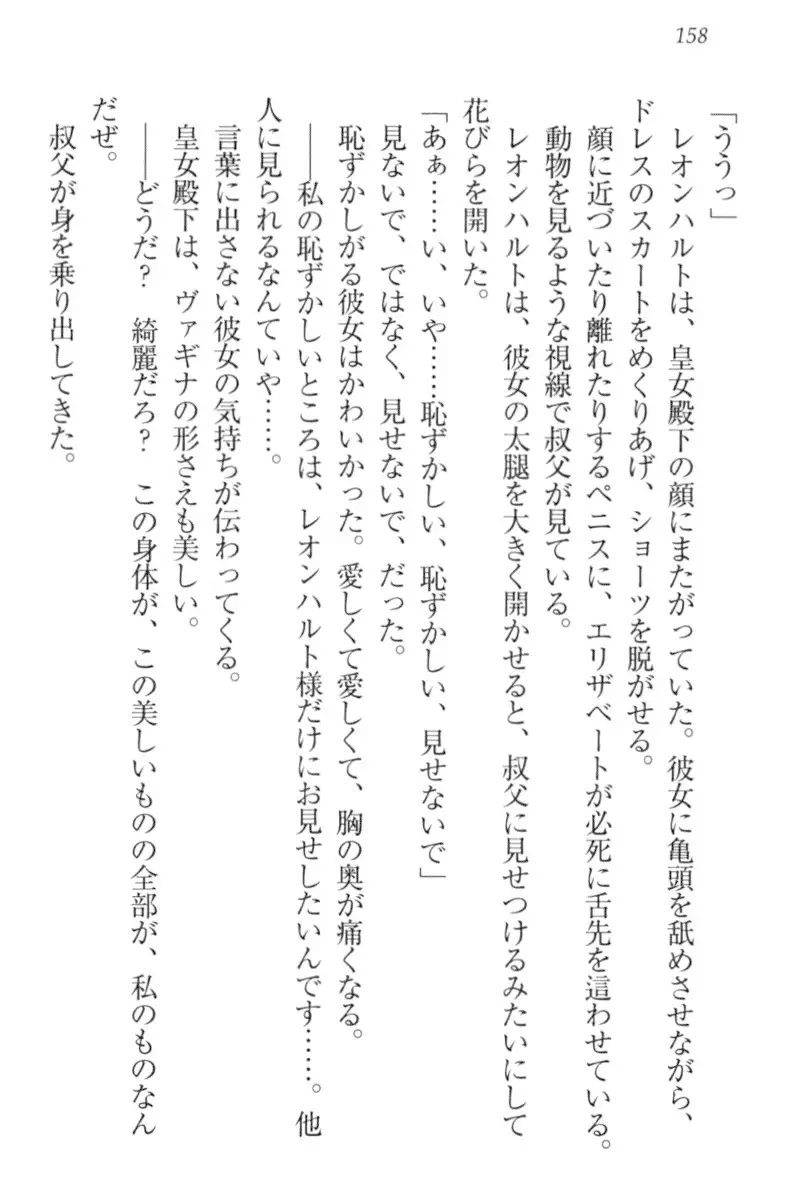 158
「ううっ」
　レオンハルトは、皇女殿下の顔にまたがっていた。彼女に亀頭を舐めさせながら、
ドレスのスカートをめくりあげ、ショーツを脱がせる。
　顔に近づいたり離れたりするペニスに、エリザベートが必死に舌先を這わせている。
　動物を見るような視線で叔父が見ている。
　レオンハルトは、彼女の太腿を大きく開かせると、叔父に見せつけるみたいにして
花びらを開いた。
「あぁ……い、いや……恥ずかしい、恥ずかしい、見せないで」
　見ないで、ではなく、見せないで、だった。
　恥ずかしがる彼女はかわいかった。愛しくて愛しくて、胸の奥が痛くなる。
　――私の恥ずかしいところは、レオンハルト様だけにお見せしたいんです……。他
人に見られるなんていや……。
　言葉に出さない彼女の気持ちが伝わってくる。
　皇女殿下は、ヴァギナの形さえも美しい。
　――どうだ？　綺麗だろ？　この身体が、この美しいものの全部が、私のものなん
だぜ。
　叔父が身を乗り出してきた。